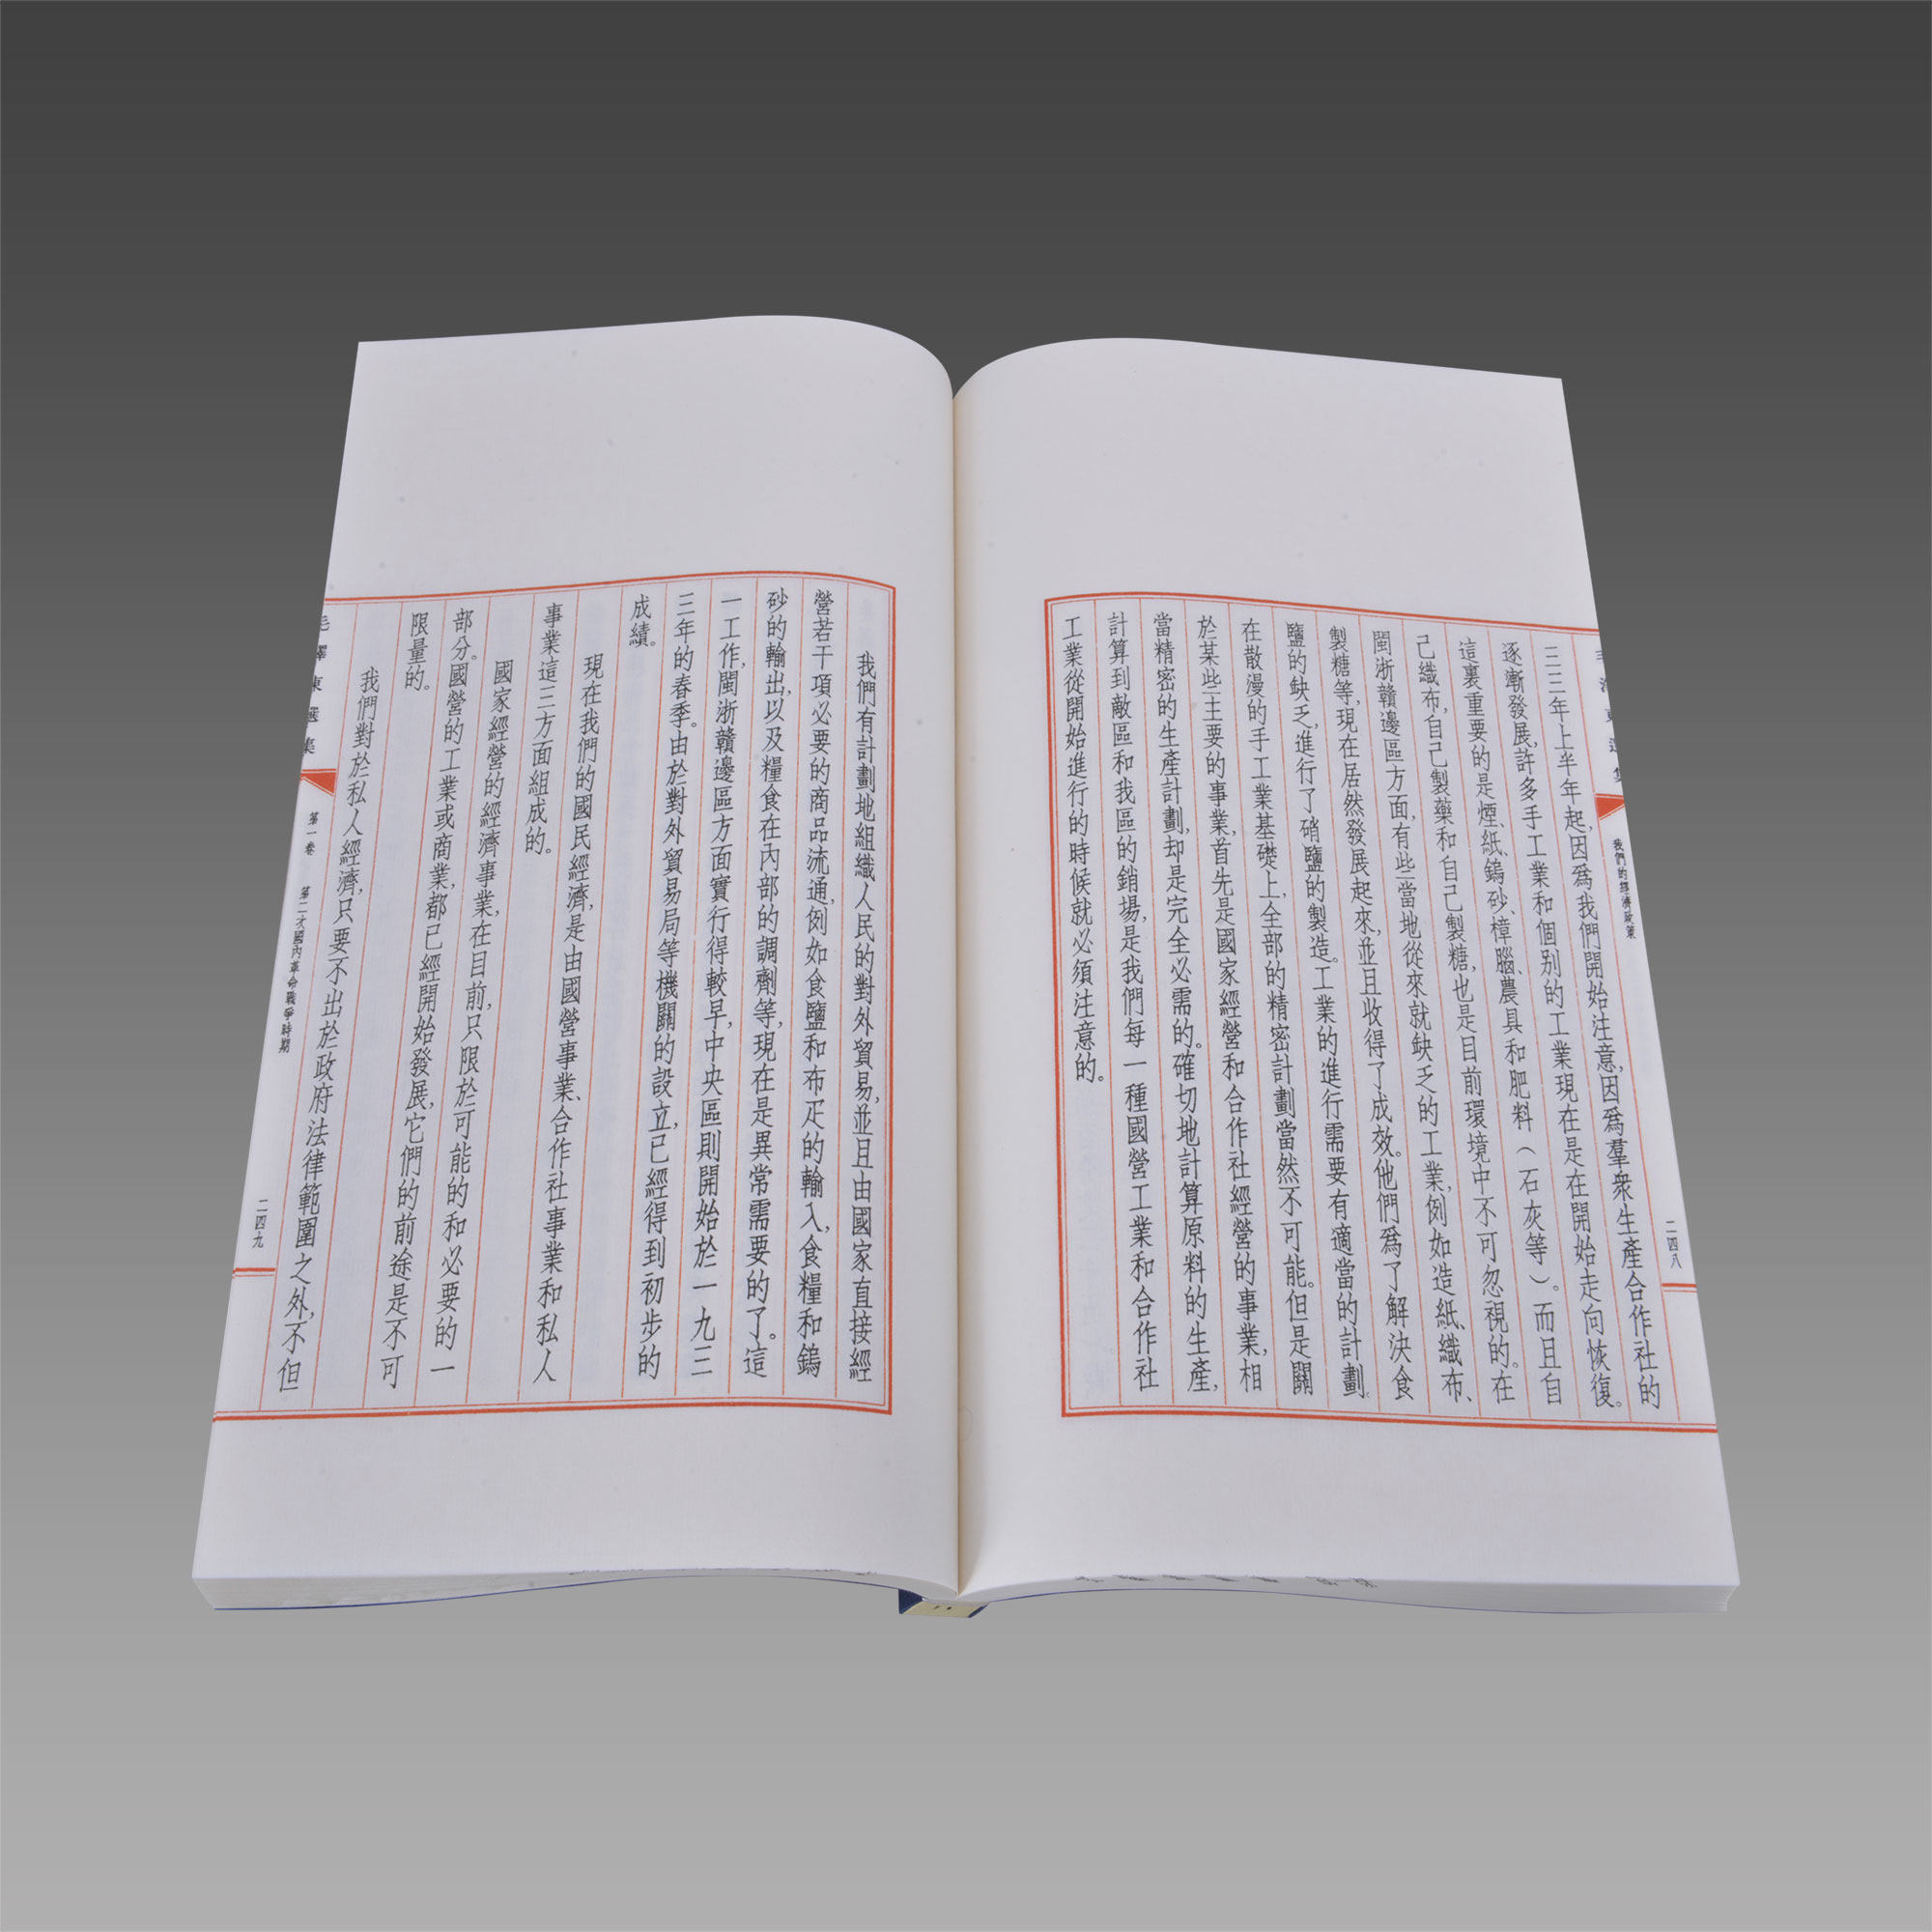 毛澤東選集
我們的經濟政策
二四八
三三年上半年起,因爲我們開始注意,因爲羣衆生產合作社的
逐漸發展,許多手工業和個别的工業現在是在開始走向恢復。
這裏重要的是煙、紙、鎢砂、樟腦、農具和肥料(石灰等)。而且自
己織布,自己製藥和自己製糖,也是目前環境中不可忽視的。在
閩浙贛邊區方面,有些當地從來就缺乏的工業,例如造紙、織布、
製糖等,現在居然發展起來,並且收得了成效。他們爲了解決食
鹽的缺乏,進行了硝鹽的製造。工業的進行需要有適當的計劃。
在散漫的手工業基礎上,全部的精密計劃當然不可能。但是關
於某些主要的事業,首先是國家經營和合作社經營的事業,相
當精密的生產計劃,却是完全必需的。確切地計算原料的生產,
計算到敵區和我區的銷場,是我們每一種國營工業和合作社
工業從開始進行的時候就必須注意的。
我們有計劃地組織人民的對外貿易,並且由國家直接經
營若干項必要的商品流通,例如食鹽和布疋的輸入,食糧和鎢
砂的輸出,以及糧食在內部的調劑等,現在是異常需要的了。這
一工作,閩浙贛邊區方面實行得較早,中央區則開始於一九三
三年的春季。由於對外貿易局等機關的設立,已經得到初步的
成績。
現在我們的國民經濟,是由國營事業、合作社事業和私人
事業這三方面組成的。
國家經營的經濟事業,在目前,只限於可能的和必要的一
部分。國營的工業或商業,都已經開始發展,它們的前途是不可
限量的。
我們對於私人經濟,只要不出於政府法律範圍之外,不但
毛澤東選集
第一卷 第二次國內革命戰爭時期
二四九